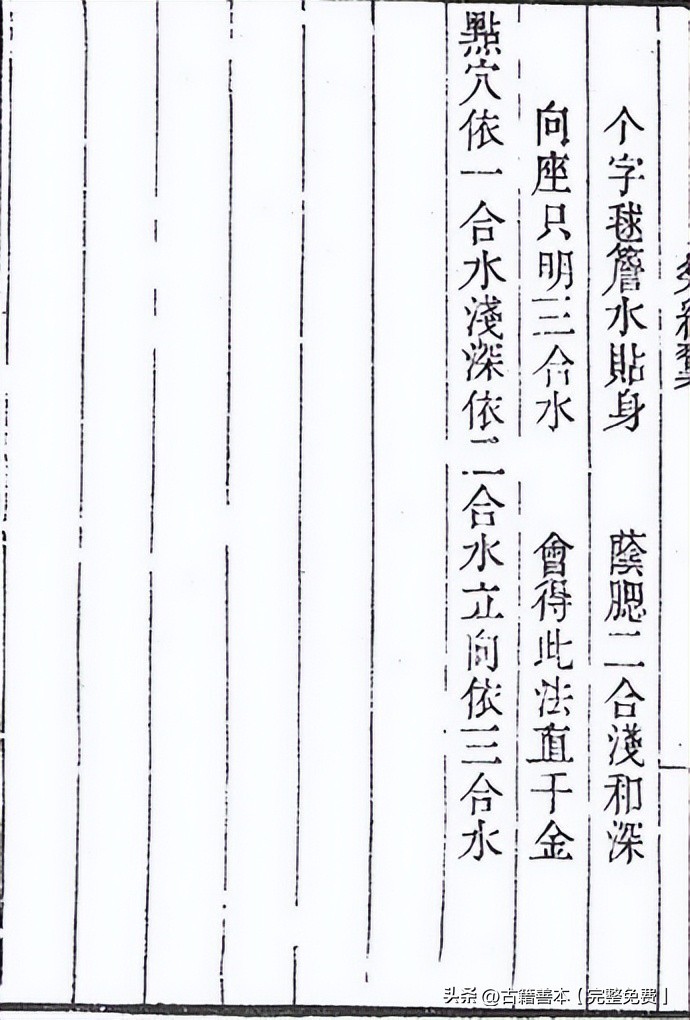 个字毬簷水貼身　蔭腮二合淺和深
向座只明三合水　會得此法直千金
點穴依一合水淺深依二合水立向依三合水
头条 @古籍善本【完整免费】